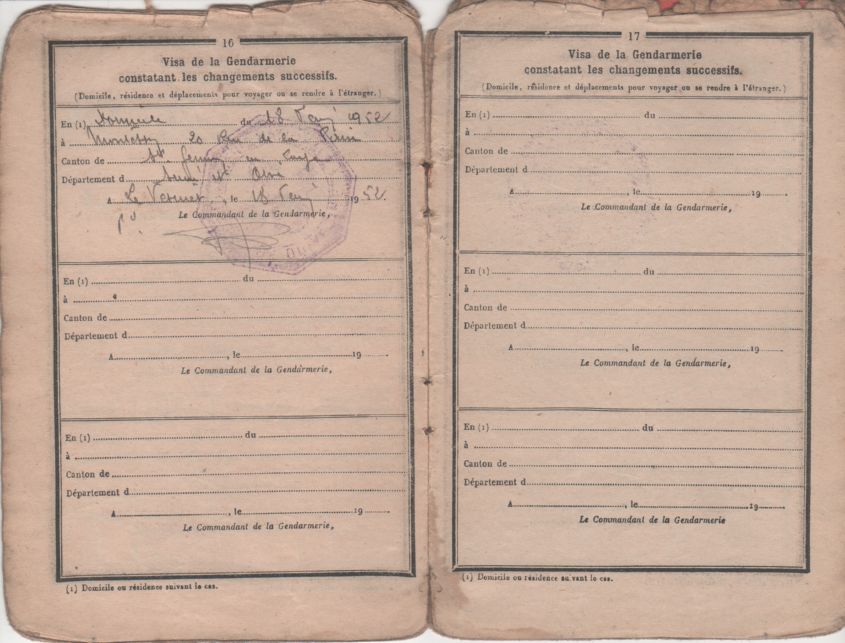 16
Visa de la Gendarmerie
constatant les changements successifs.
(Domicile, résidence et déplacements pour voyager ou se rendre à l'étranger.)
En (1) domicile du 18 1952
à 20 Rue de la
Canton de St. en
Département d Seine et Oise
A Le Vésinet, le 18 1952
Le Commandant de la Gendarmerie,
En (1) du
à
Canton de
Département d
A , le 19
Le Commandant de la Gendarmerie,
En (1) du
à
Canton de
Département d
A , le 19
Le Commandant de la Gendarmerie,
(1) Domicile ou résidence suivant le cas.
17
Visa de la Gendarmerie
constatant les changements successifs.
(Domicile, résidence et déplacements pour voyager ou se rendre à l'étranger.)
En (1) du
à
Canton de
Département d
A , le 19
Le Commandant de la Gendarmerie,
En (1) du
à
Canton de
Département d
A , le 19
Le Commandant de la Gendarmerie,
En (1) du
à
Canton de
Département d
A , le 19
Le Commandant de la Gendarmerie
(1) Domicile ou résidence suivant le cas.